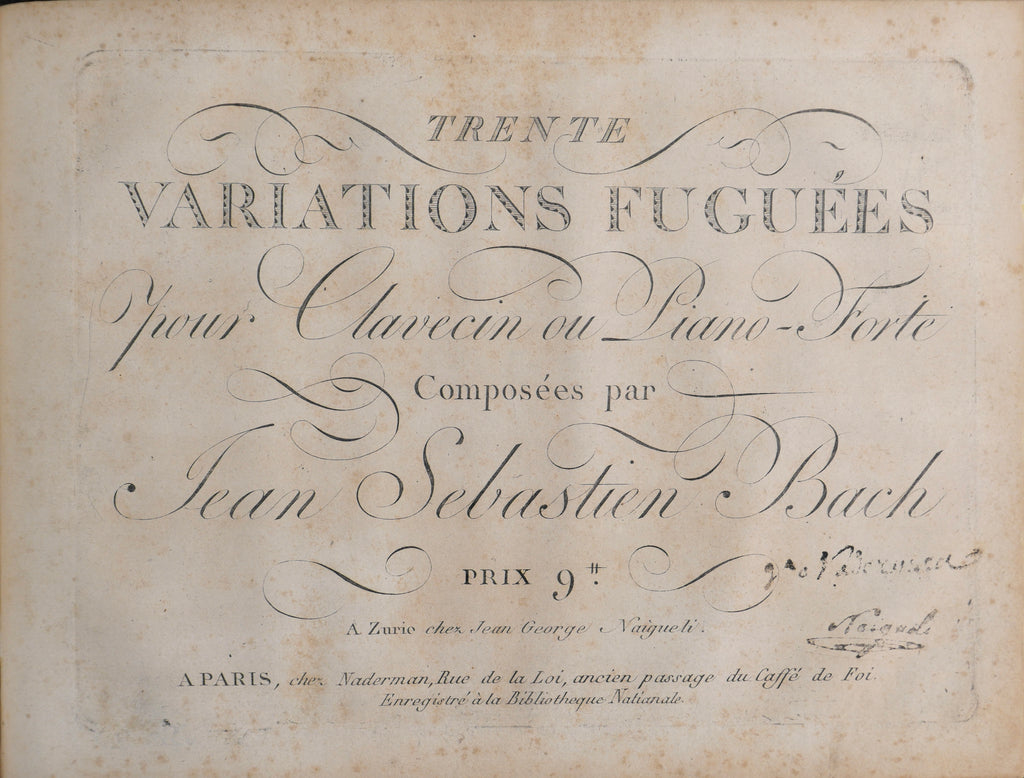 TRENTE
VARIATIONS FUGUÉES
pour Clavecin ou Piano-Forte
Composées par
Jean Sebastien Bach
PRIX 9.ᵗᵗ
Naderman
Naigueli
A Zuric chez Jean George Naigueli.
A PARIS, chez Naderman, Rue de la Loi, ancien passage du Caffé de Foi.
Enregistré à la Bibliotheque Nationale.